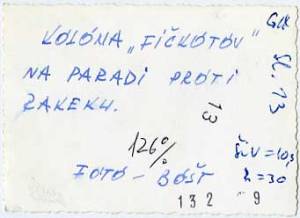 KOLONA „FIČKOTOV"
NA PARADI PROTI
ZAKEKU.
126%
FOTO - BÖŠT
Sl. 13
13
Š/V = 10,5
R = 30
132 9